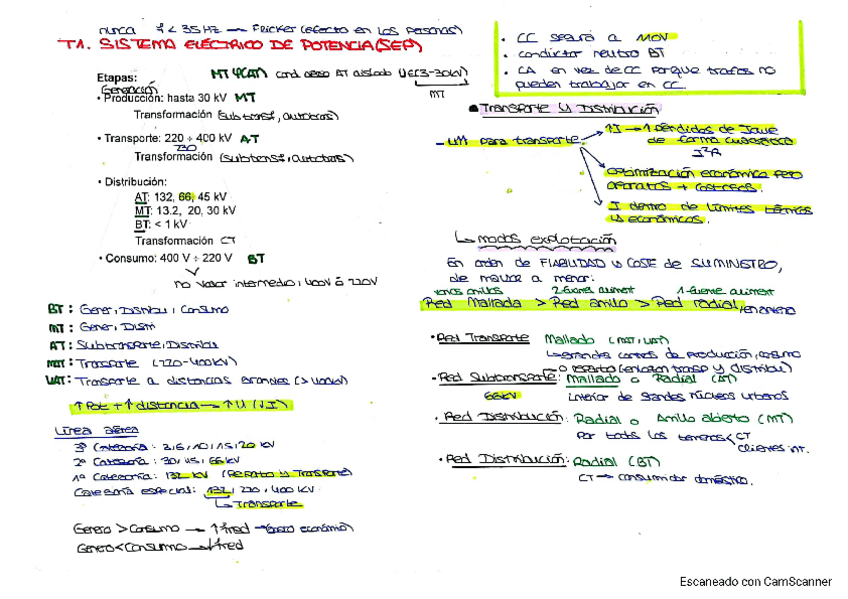 nunca f < 35 Hz → Flicker (efecto en las personas)
T1. SISTEMA ELÉCTRICO DE POTENCIA (SEP)
Etapas:
Generación
• Producción: hasta 30 kV MT
Transformación (subtransf, autotraf)
• Transporte: 220 ÷ 400 kV AT
Transformación (subtransf, autotraf)
• Distribución:
AT: 132, 66, 45 kV
MT: 13.2, 20, 30 kV
BT: < 1 kV
Transformación CT
• Consumo: 400 V ÷ 220 V BT
no valor intermedio, 400V ó 220V
BT: Gener, Distribu, Consumo
MT: Gener, Distri
AT: Subtransporte, Distribu
MAT: Transporte (220-400kV)
UAT: Transporte a distancias grandes (>400kV)
↑Pot + ↑distancia → ↑U (↓I)
Línea aérea
3ª Categoría: 3, 6, 10, 15, 20 kV
2ª Categoría: 30, 45, 66 kV
1ª Categoría: 132 kV (Reparto y Transporte)
Categoría especial: 132, 220, 400 kV
↳ Transporte
Genero > Consumo → ↑fred → económico
Genero < Consumo → ↓fred
• CC será a MOV
• conductor neutro BT
• CA en vez de CC porque trafos no
pueden trabajar en CC.
• Transporte y Distribución
- UM para transporte
↑I → ↑ pérdidas de Joule
de forma cuadrática
I²R
Optimización económica pero
aparatos + costosos.
I dentro de límites técnicos
y económicos.
↳ modos explotación
En orden de FIABILIDAD y COSTE de SUMINISTRO,
de mayor a menor:
varios anillos 2 fuentes aliment 1 fuente aliment
Red Mallada > Red anillo > Red radial
• Red Transporte Mallado (MAT, UAT)
↳ grandes centros de producción, consumo
o reparto (enlazan transp y distribu)
• Red Subtransporte: Mallado o Radial (AT)
66kV interior de grandes núcleos urbanos
• Red Distribución: Radial o Anillo abierto (MT)
Por todos los terrenos < CT
clientes int.
• Red Distribución: Radial (BT)
CT → consumidor doméstico.
Escaneado con CamScanner